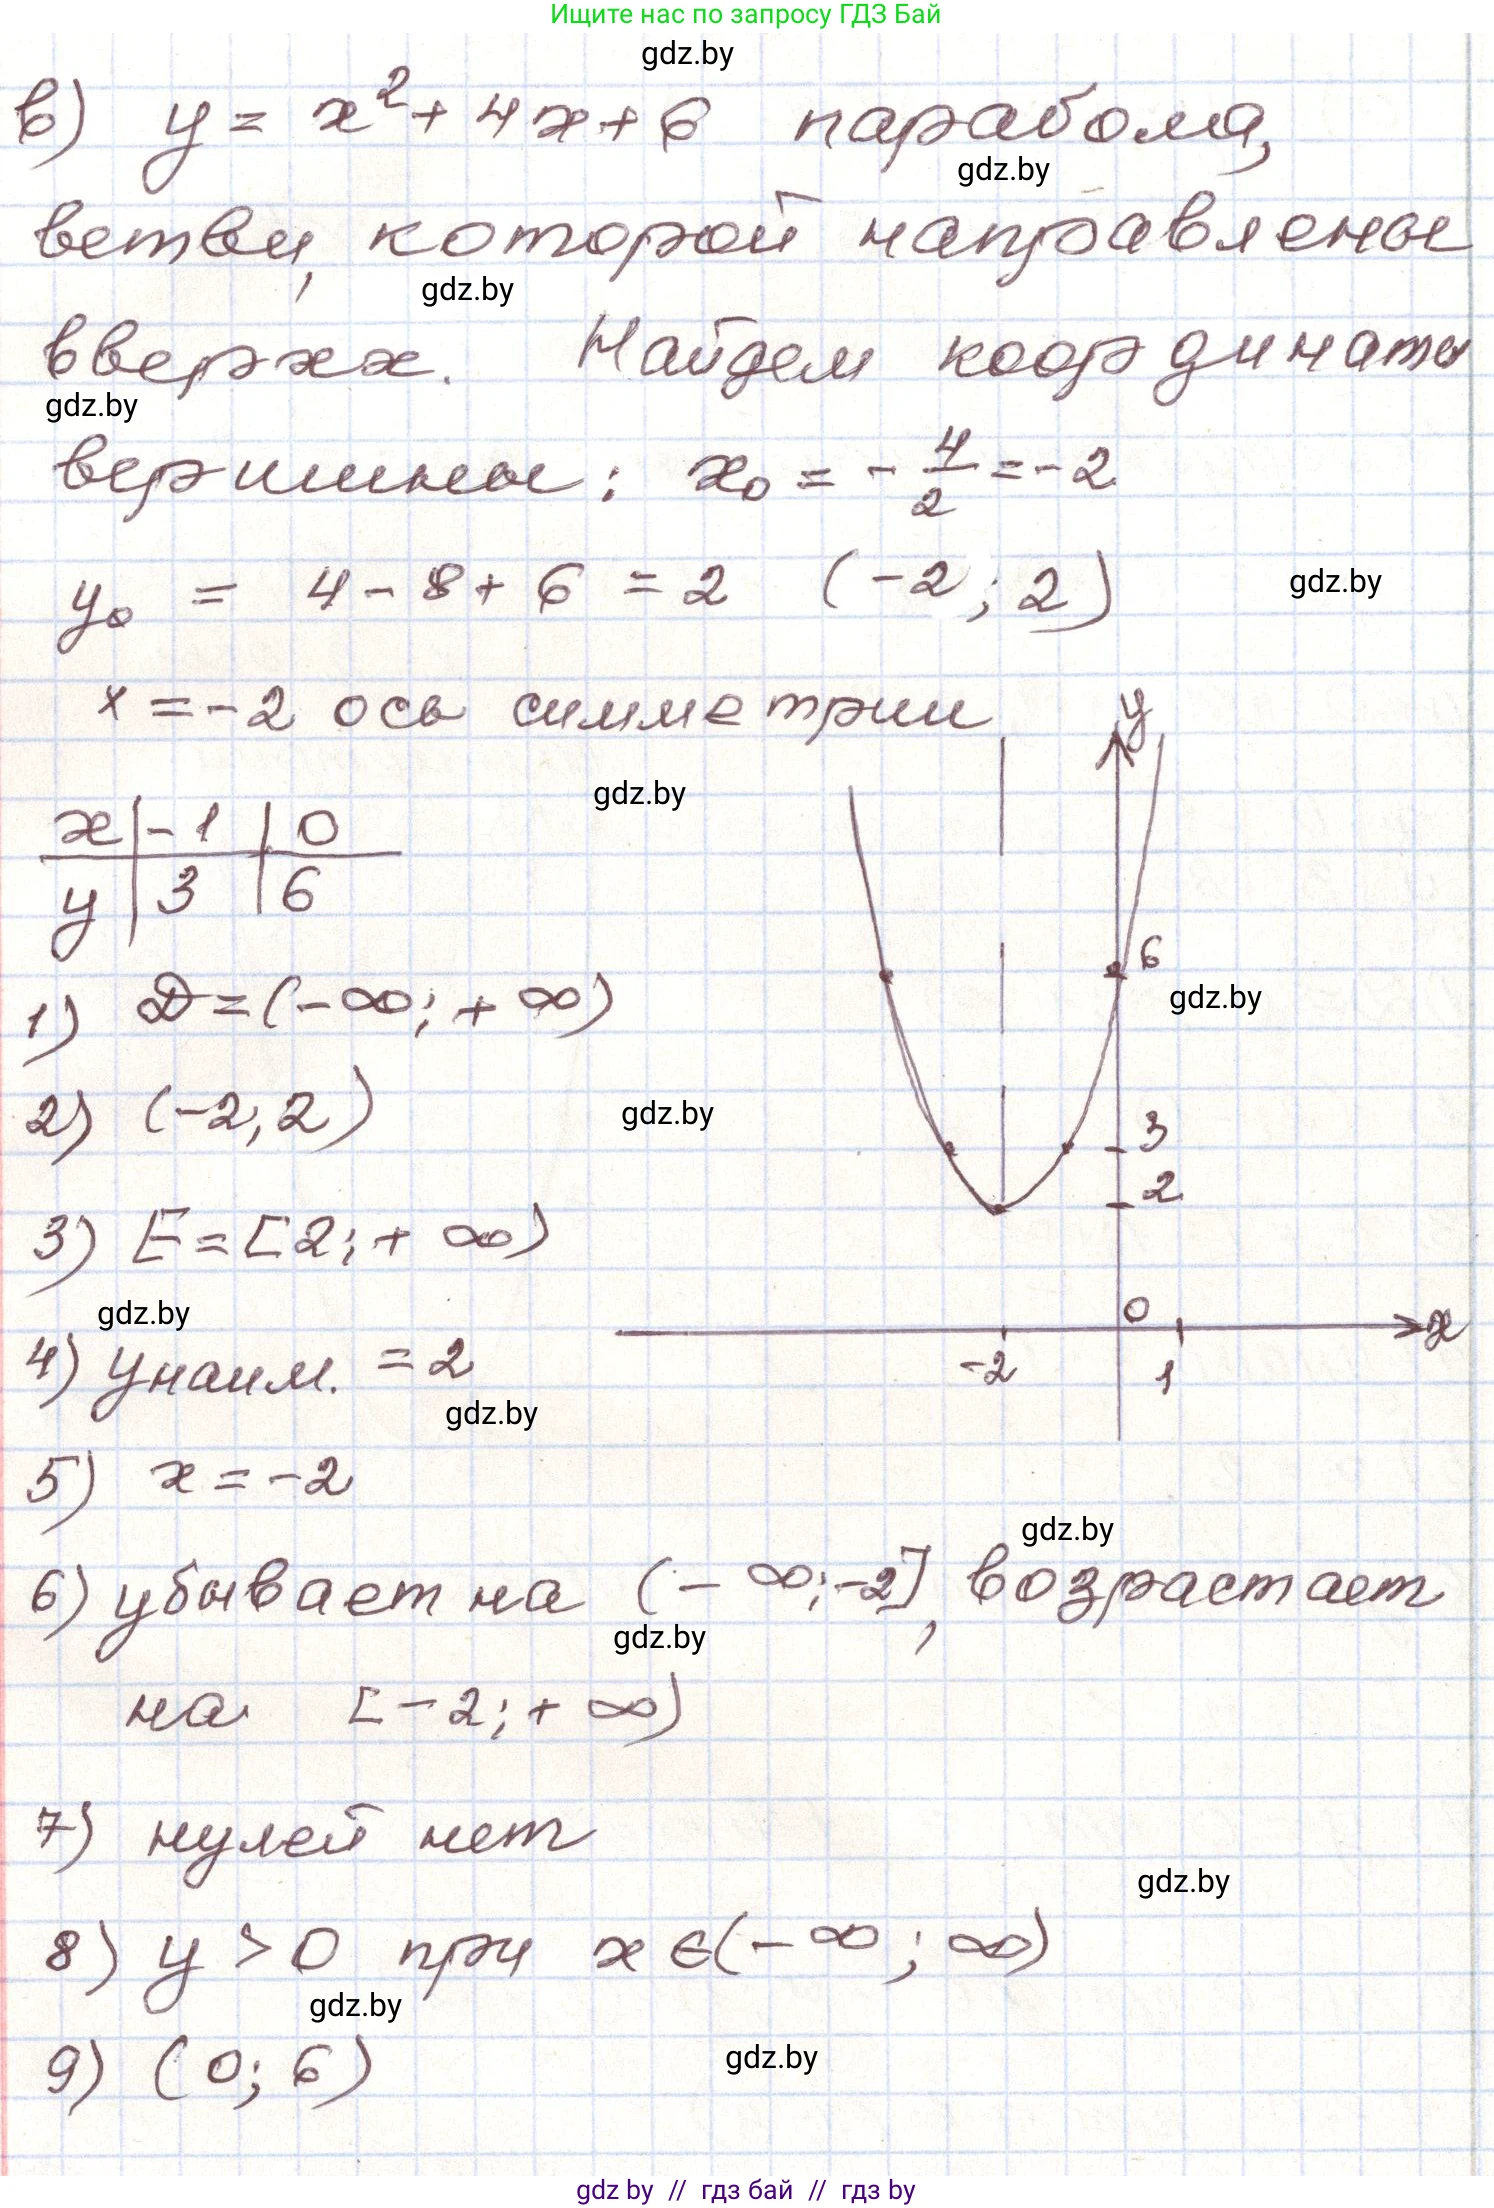 Ищите нас по запросу ГДЗ Бай
gdz.by
в) y = x² + 4x + 6 парабола,
gdz.by
ветви, которой направлены
gdz.by
вверхх. Найдем координаты
gdz.by
вершины: x₀ = -4/2 = -2
y₀ = 4 - 8 + 6 = 2 (-2; 2)
gdz.by
x = -2 ось симметрии
y
gdz.by
x | -1 | 0
y | 3 | 6
6
gdz.by
1) D = (-∞; +∞)
2) (-2, 2)
gdz.by
3
2
3) E = [2; +∞)
gdz.by
0
x
-2
1
4) yнаим. = 2
gdz.by
5) x = -2
gdz.by
6) убывает на (-∞; -2], возрастает
gdz.by
на [-2; +∞)
7) нулей нет
gdz.by
8) y > 0 при x ∈ (-∞; ∞)
gdz.by
9) (0; 6)
gdz.by
gdz by // гдз бай // гдз by